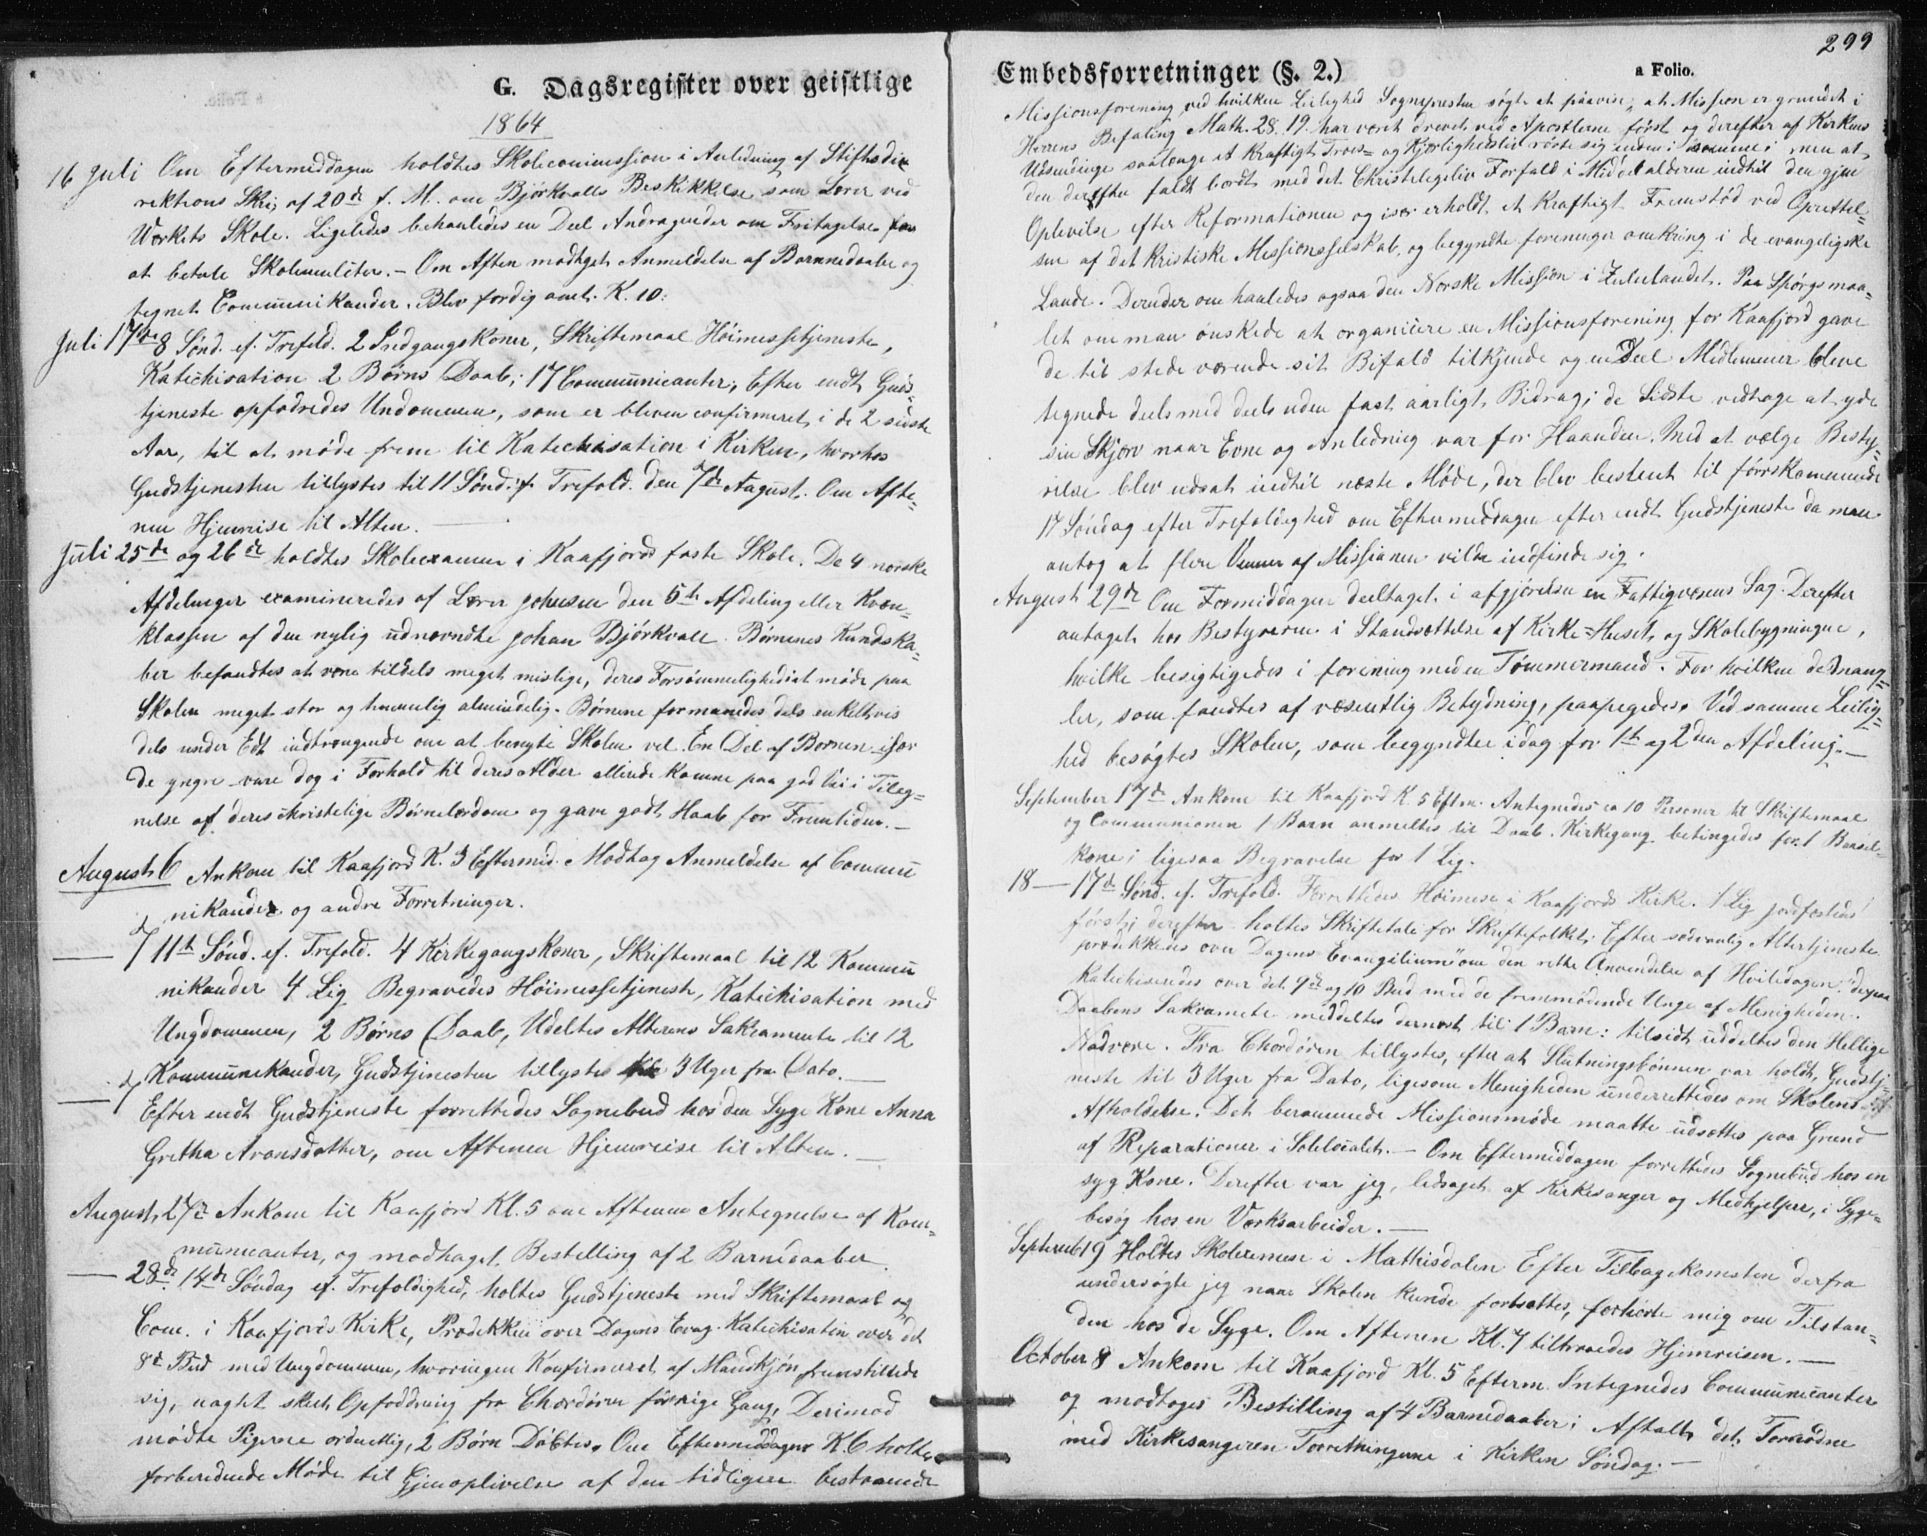 G. Dagsregister over geistlige
1864
16 Juli Om Eftermeddagen holdtes Skolecommission i Anledning af Stiftsdi
rektions Skri; af 20de f. M. om Björkvalls Beskikkelse som Lærer ved
Værkets Skole. Ligeledes behanledes en Deel Andragender om Fritagelse for
at betale Skolemulcter. – Om Aften modtaget Anmeldelse af Barnedaabe og
tegnet Communikander. Blev færdig omt. K. 10:
Juli 17de 8 Sönd. ef. Trefold. 2 Indgangskoner, Skriftemaal Höimessetjeneste,
Katechisation 2 Börns Daab; 17 Communicanter, Efter endt Guds-
tjeneste opfodredes Undommen, som er bleven confirmeret, i de 2 sidste
Aar, til at möde frem til Katechisation i Kirken, hvorhos
Gudstjenesten tillystes til 11 Sönd. ef. Trefold. den 7de August. Om Afte-
nen Hjemreise til Alten.
Juli 25de og 26de holdtes Skoleexamen i Kaafjords faste Skole. De 4 norske
Afdelinger examineredes af Lærer Johnsen den 5te Afdeling eller Kvæn-
klassen af den nylig udnævndte Johan Björkvall. Börnenes Kundska-
ber befandtes at være tildels meget mislige, deres Forsömmelighed i at möde paa
Skolen meget stor og temmelig almindelig. Börnene formanedes dels enkeltvis
dels under Edt indtrængende om at benyte Skolen vel. En Del af Börnen især
de yngre vare dog i Forhold til deres Alder allerede komne paa god Vei i Tileg-
nelse af deres christelige Börnelærdom og gave godt Haab for Fremtiden. –
August 6 Ankom til Kaafjord K. 3 Eftermid. Modtog Anmeldelse af Commu
nikander og andre Forretninger.
— 7 11te Sönd. ef. Trefold. 4 Kirkegangskoner, Skriftemaal til 12 Kommu
nikander 4 Lig Begravedes Höimessetjeneste, Katechisation med
Ungdommen, 2 Börns Daab, Udeltes Alterens Sakramente til 12
Kommunikander, Gudstjenesten tillystes 3 Uger fra Dato.
— 7 Efter endt Gudstjeneste forrettedes Sognebud hos den Syge Kone Anna
Gretha Aronsdatter, om Aftenen Hjemreise til Alten.
August 27de Ankom til Kaafjord Kl. 5 om Aftenen Antegnelse af Kom-
municanter, og modtaget Bestelling af 2 Barnedaaber.
— 28de 14de Söndag ef. Trefoldighed, holtes Gudstjeneste med Skriftemaal og
Com. i Kaafjords Kirke, Prædikken over Dagens Evag. Katechisatin over det
8de Bud med Ungdommen, hvoringen Konfirmeret af Mandkjön fremstillede
sig, uagtet skeet Opfodring fra Chordören forrige Gang, Derimod
mödte Pigerne ordentlig, 2 Börn Döbtes. Om Eftermeddagen K 6 holtes
forberedende Möde til Gjenoplivelse af den tidligere bestaaende
299
Embedsforretninger (§. 2.) a Folio.
Missionsforening, ved hvilken Leilighed Sognepresten sögte at paavise, at Mission er grundet i
Herrens Befaling Math. 28, 19. har været drevet ved Apostlerne först og derefter af Kirkens
Udsendinge saalænge et kraftigt Troes- og Kjærlighedsliv rörte sig inden i samme; men at
den derefter faldt bordt med det Christeligeliv Forfald i Middelalderen indtil den gjen
Oplivelse efter Reformationen og især erholdt et kraftigt Fremstöd ved Oprettel-
sen af det kristiske Missionsselskab, og begyndte foreninger omkring i de evangeligske
Lande. Derunder om hanledes ogsaa den Norske Mission i Zululandet. Paa Spörgsmaa-
let om man önskede at organicere en Missionsforening for Kaafjord gave
de til stede værende sit Bifald tilkjende og en Deel Midlemmer bleve
tegnede deels med deels uden fast aarligt Bidrag; de Sidste vedtoge at yde
sin Skjærv naar Evne og Anledning var for Haanden. Med at vælge Besty-
relse blev udsat indtil næste Möde, der blev bestemt til förstkommende
17 Söndag efter Trefoldighed om Eftermeddagen efter endt Gudstjeneste da man
antog at flere Venner af Missionen vilde indfinde sig.
August 29de Om Formiddagen deeltaget i afgjörelsen en Fattigvæsens Sag. Derefter
antaget hos Bestyreren i Standsættelse af Kirke-Huset, og Skolebygningne,
hvilke besigtigedes i forening med en Tömmermand. For hvilken de Mang-
ler, som fandtes af væsentlig Betydning, paapegedes. Ved samme Leilig-
hed besögtes Skolen, som begyndtes idag for 1te og 2den Afdeling. –
September 17de Ankom til Kaafjord K. 5 Eftm. Antegnedes ca 10 Personer til Skriftemaal
og Communionen 1 Barn anmeltes til Daab. Kirkegang betingedes for 1 Barsel-
kone; ligesaa Begravelse for 1 Lig.
18 — 17de Sönd. ef. Trefold. Forrettedes Höimese i Kaafjords Kirke. 1 Lig jordfæstedes
först; derefter holtes Skriftetale for Skriftefolket; Efter sædvanlig Altertjeneste
prædikkedes over Dagens Evangelium "om den rette Anvendelse af Hviledagen," derpaa
katechiseredes over det 9de og 10 Bud med de fremmödende Unge af Menigheden.
Daabens Sakramete meddeltes dernæst til 1 Barn: tilsidst uddeltes den Hellige
Nadvere. Fra Chordören tillystes, efter at Slutningsbönnen var holdt, Gudstj-
neste til 3 Uger fra Dato, ligesom Menigheden underrettedes om Skolens
Afholdelse. Det berammede Missionsmöde maatte udsættes paa Grund
af Reparationer i Solelocalet. – Om Eftermeddagen forrettedes Sognebud hos en
syg Kone. Derefter var jeg, ledsaget af Kirkesanger og Medhjelper, i Syge-
besög hos en Værksarbeider. —
Septemb 19 Holdtes Skolexmese i Mathisdalen Efter Tilbagekomsten derfra
undersögte jeg naar Skolen kunde fortsættes, forhörte mig om Tilstan-
den hos de Syge. Om Aftenen Kl. 7 tiltraadtes Hjemreisen. —
October 8 Ankom til Kaafjord Kl. 5 Efterm. Integnedes Communicanter
og modtoges Bestilling af 4 Barnedaaber; Aftalt det Fornödne
med Kirkesangeren Forretningerne i Kirken Söndag. —